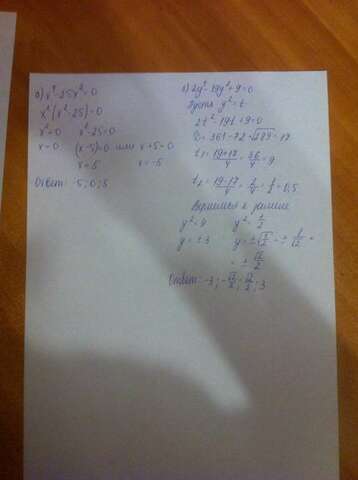 а) x⁴-25x²=0
x²(x²-25)=0
x²=0 x²-25=0
x=0 (x-5)=0 или x+5=0
x=5 x=-5
Ответ: -5; 0; 5
б) 2y⁴-19y²+9=0
Пусть y²=t
2t²-19t+9=0
D=361-72=√289=17
t₁=(19+17)/4=36/4=9
t₂=(19-17)/4=2/4=1/2=0,5
Вернёмся к замене
y²=9 y²=1/2
y=±3 y=±√1/2=±1/√2=
=±√2/2
Ответ: -3; -√2/2; √2/2; 3